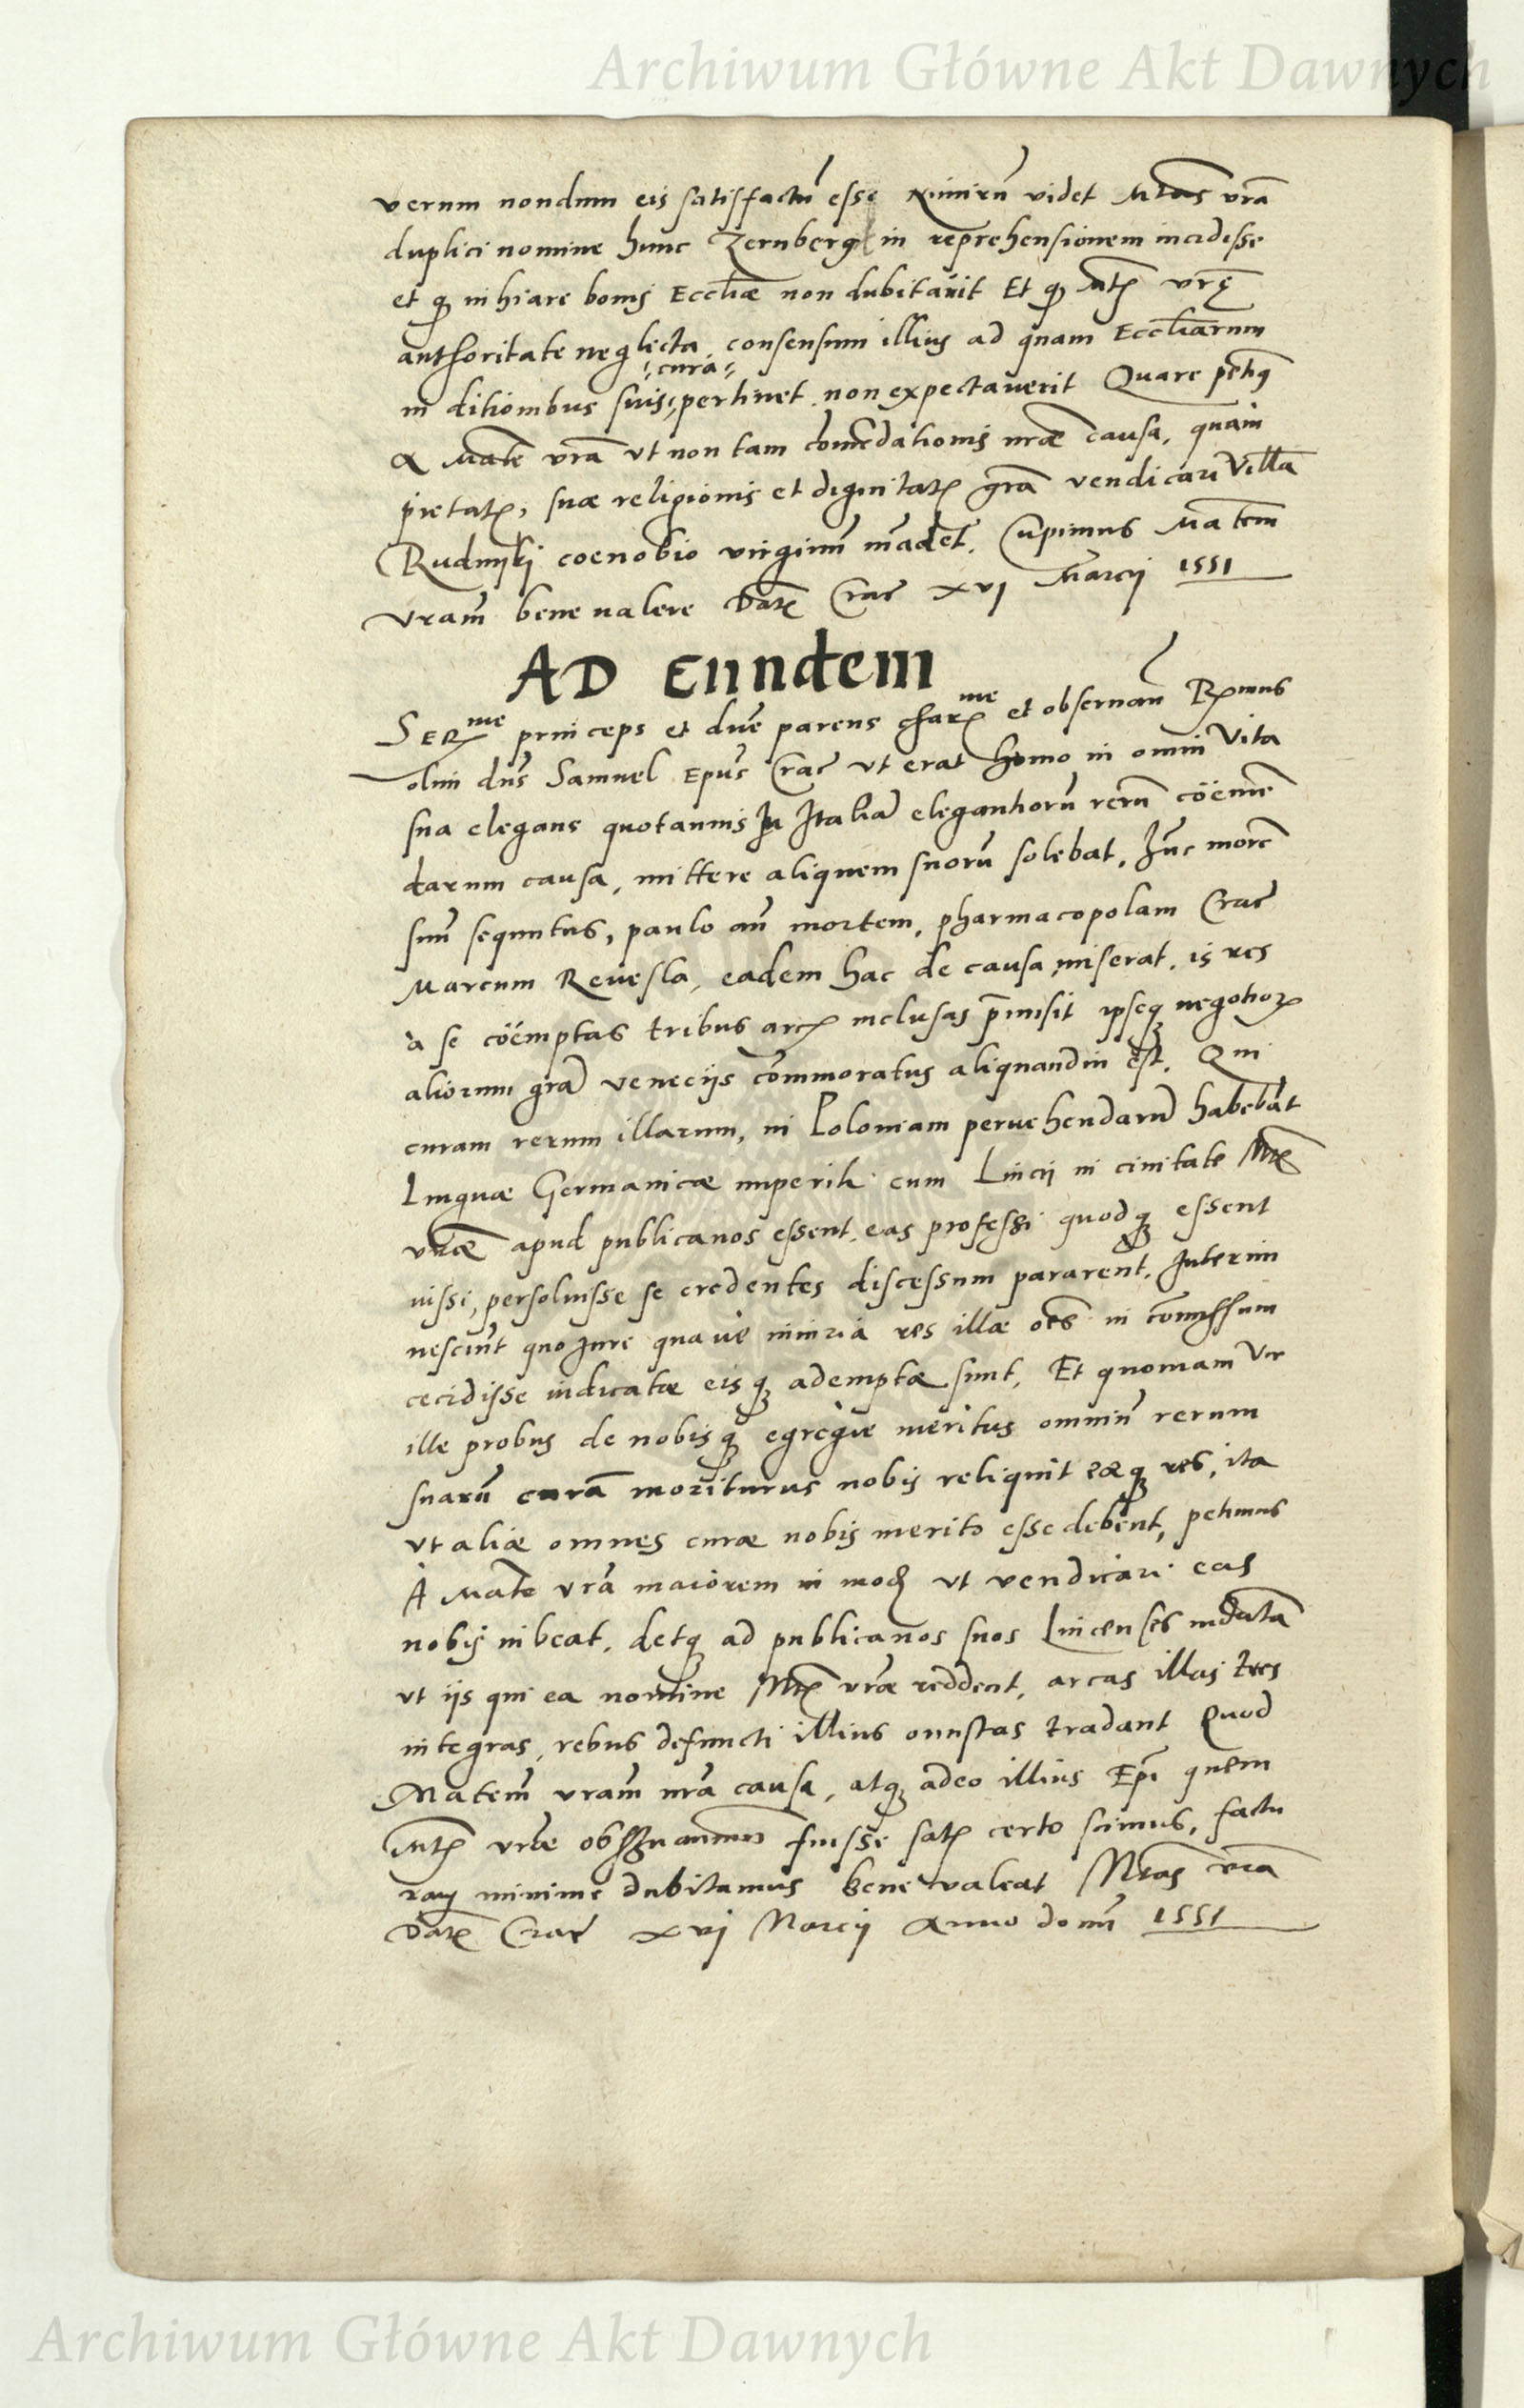 Archiwum Główne Akt Dawnych
verum nondum eis satisfactū esse Nimirū videt Mtas vrā
duplici nomine hunc Zernberg in reprehensionem incidisse
et qp inhiare bonis Eccliæ non dubitavit Et qp Mtis vrę
authoritate neglecta, consensum illius ad quam Eccliarum
cura
in ditionibus suis pertinet non expectaverit Quare petimq
a Mate vrā ut non tam comēdationis nræ causa, quam
pietatis, suæ religionis et dignitatis grā vendicari villā
Rudnijki coenobio virginū mādet. Cupimus Matem
vram̄ bene valere Datę Crac xvj Marcij 1551
AD Eundem
SERme princeps et dn̄e parens charme et observan̄ Rmus
olim dn̄s Samuel Epūs Crac ut erat homo in omni vita
sua elegans quotannis In Italiā elegantiorū rerū coëmē
darum causa, mittere aliquem suorū solebat, Hūc morē
suū sequutus, paulo an̄ mortem, pharmacopolam Crac
Marcum Revesla, eadem hac de causa miserat, is res
à se coëmptas tribus arcis inclusas p̄misit ipseq negotior
aliorum grā veneciis cōmmoratus aliquandiu est. Qui
curam rerum illarum, in Poloniam pervehendarū habebāt
Linguæ Germanicæ imperiti cum Lincij in civitate Mtis
vræ apud publicanos essent, eas professi quodq essent
iussi, persoluisse se credentes discessum pararent, Interim
nesciūt quo Jure quave iniuria res illæ oēs in cōmissum
cecidisse iudicatæ eisq ademptæ sunt, Et quoniam vir
ille probus de nobisq egregie meritus omniū rerum
suarū curā moriturus nobis reliquit eæq res, ita
ut aliæ omnes curæ nobis merito esse debent, petimus
A Mate vrā maiorem in mod ut vendicari eas
nobis iubeat, detq ad publicanos suos Lincenses mādatā
ut iis qui ea nomine Mtis vræ reddent, arcas illas tres
integras, rebus defuncti illius onustas tradant Quod
Matem̄ vram̄ nrā causa, atq adeo illius Epī quem
Mtis vræ observantimum fuisse satis certo scimus, factu
ram minime dubitamus bene valeat Mtas vrā
Datę Crac xvj Marcij Anno domī 1551
Archiwum Główne Akt Dawnych